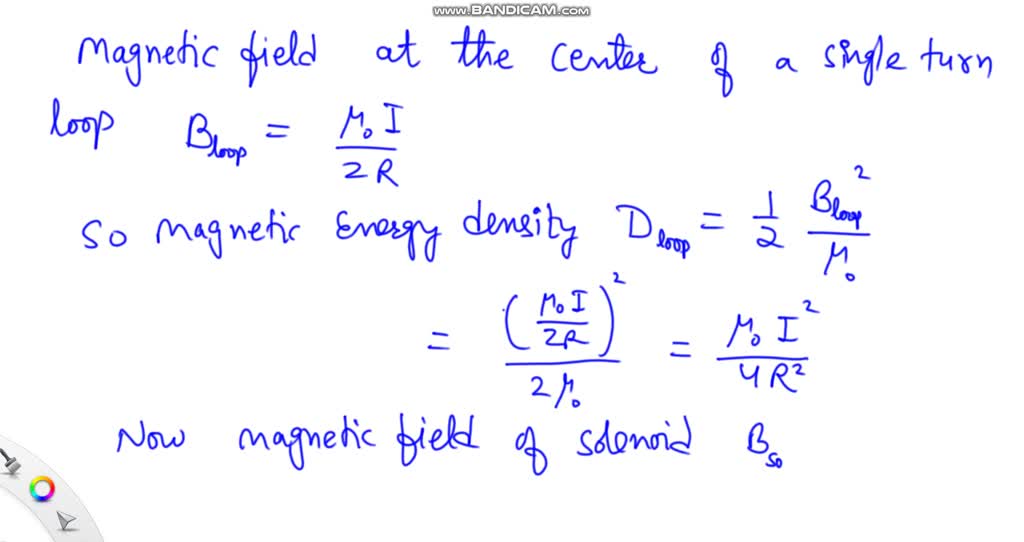 www.BANDICAM.com
Magnetic field at the center of a single turn
loop B_loop = μ₀ I / 2R
So magnetic Energy density D_loop = 1/2 B_loop² / μ₀
= (μ₀ I / 2R)² / 2μ₀ = μ₀ I² / 4R²
Now magnetic field of solenoid B_so